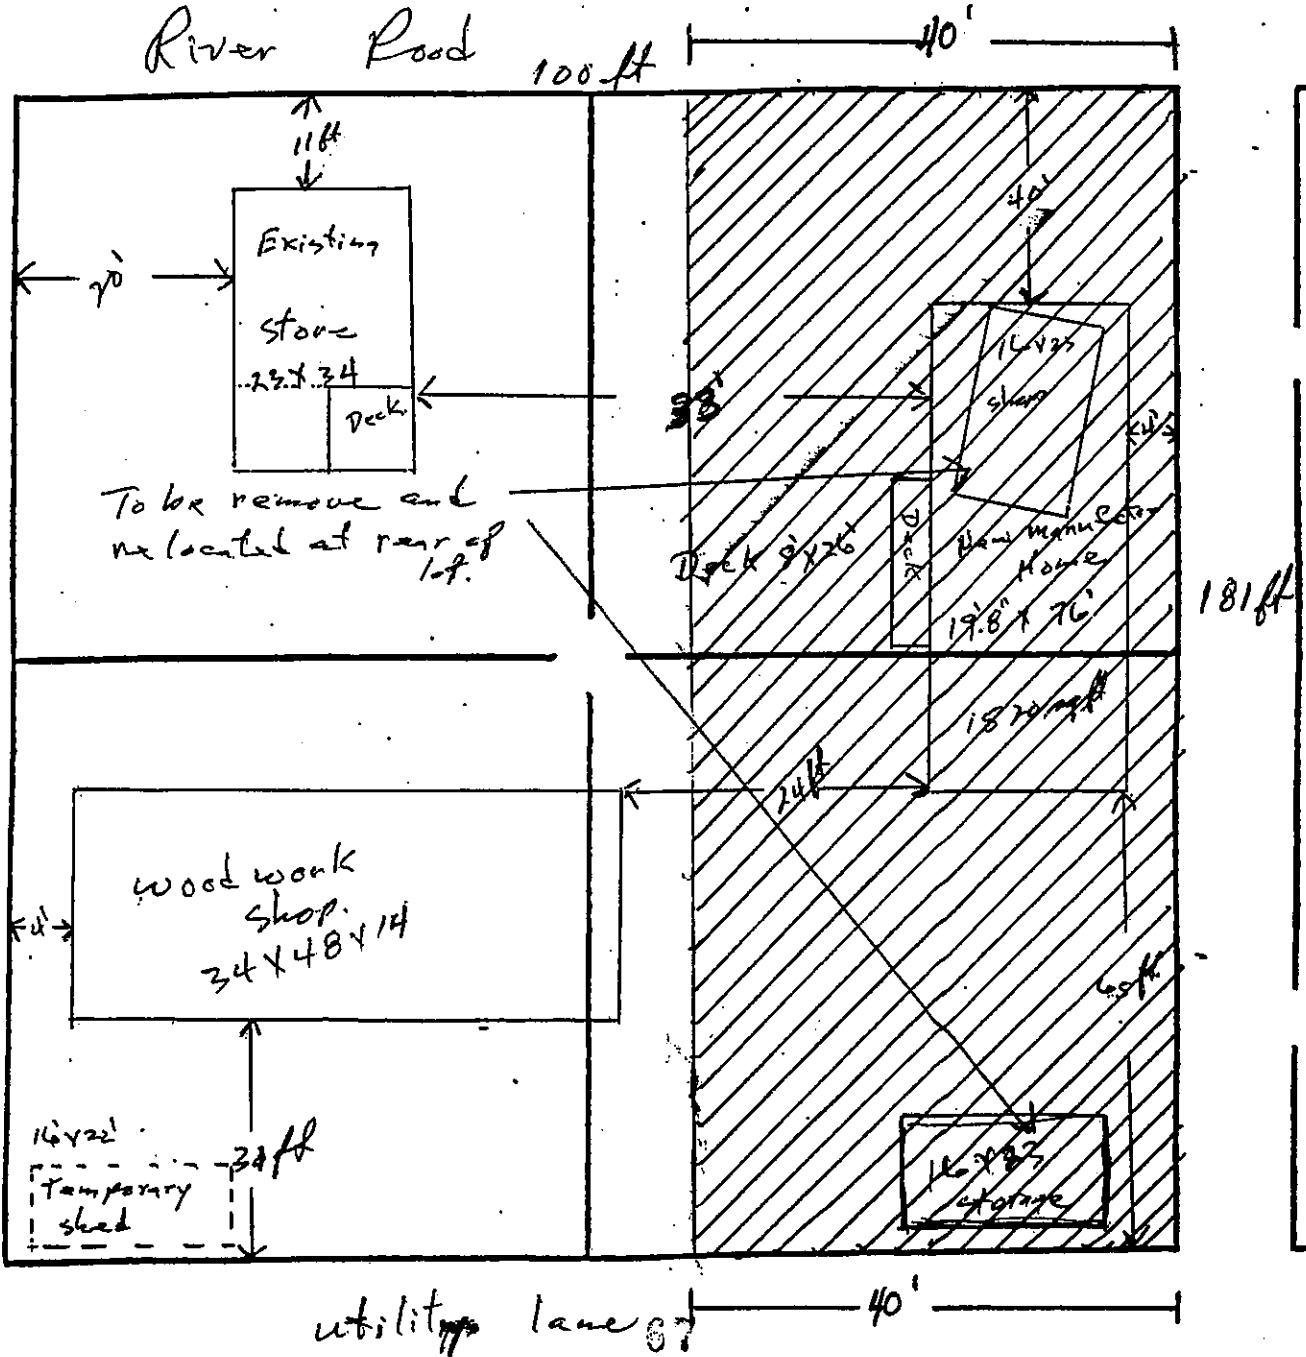 River Road
40'
100 ft
11 ft
40'
20'
Existing
store
23 X 34
Deck
38'
16 X 23
shop
4'
To be remove and
relocated at rear of
lot.
Deck 8' X 26'
Deck
New manufactor
Home
19'.8" X 76'
181 ft
1820 sqft
24 ft
wood work
shop.
34 X 48 X 14
4'
65 ft
16' X 22'
Temporary
shed
ft
storage
utility lane
67
40'